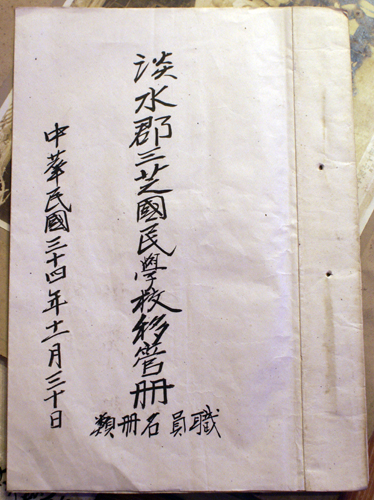 淡水郡三芝國民學校移管冊
職員名冊類
中華民國三十四年十一月三十日